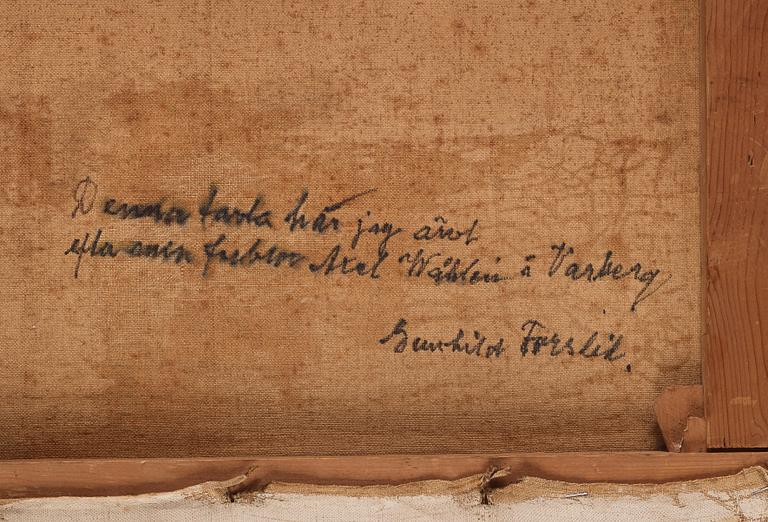 Denna tavla har jag ärvt
efter min farbror Axel Wåhlin i Varberg
Gunhild Forslid.